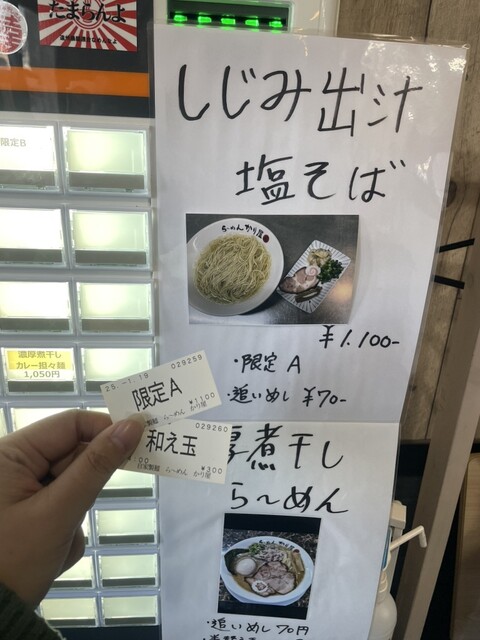 たまらんよ
限定B
しじみ出汁
塩そば
らーめんかり屋
¥1.100-
・限定 A
・追いめし ¥70-
濃厚煮干し
カレー担々麺
1,050円
25.-1.19 029259
限定A
¥1100
らーめん かり屋
029260
和え玉
¥300
自家製麺 らーめん かり屋
厚煮干し
らーめん
・追いめし 70円